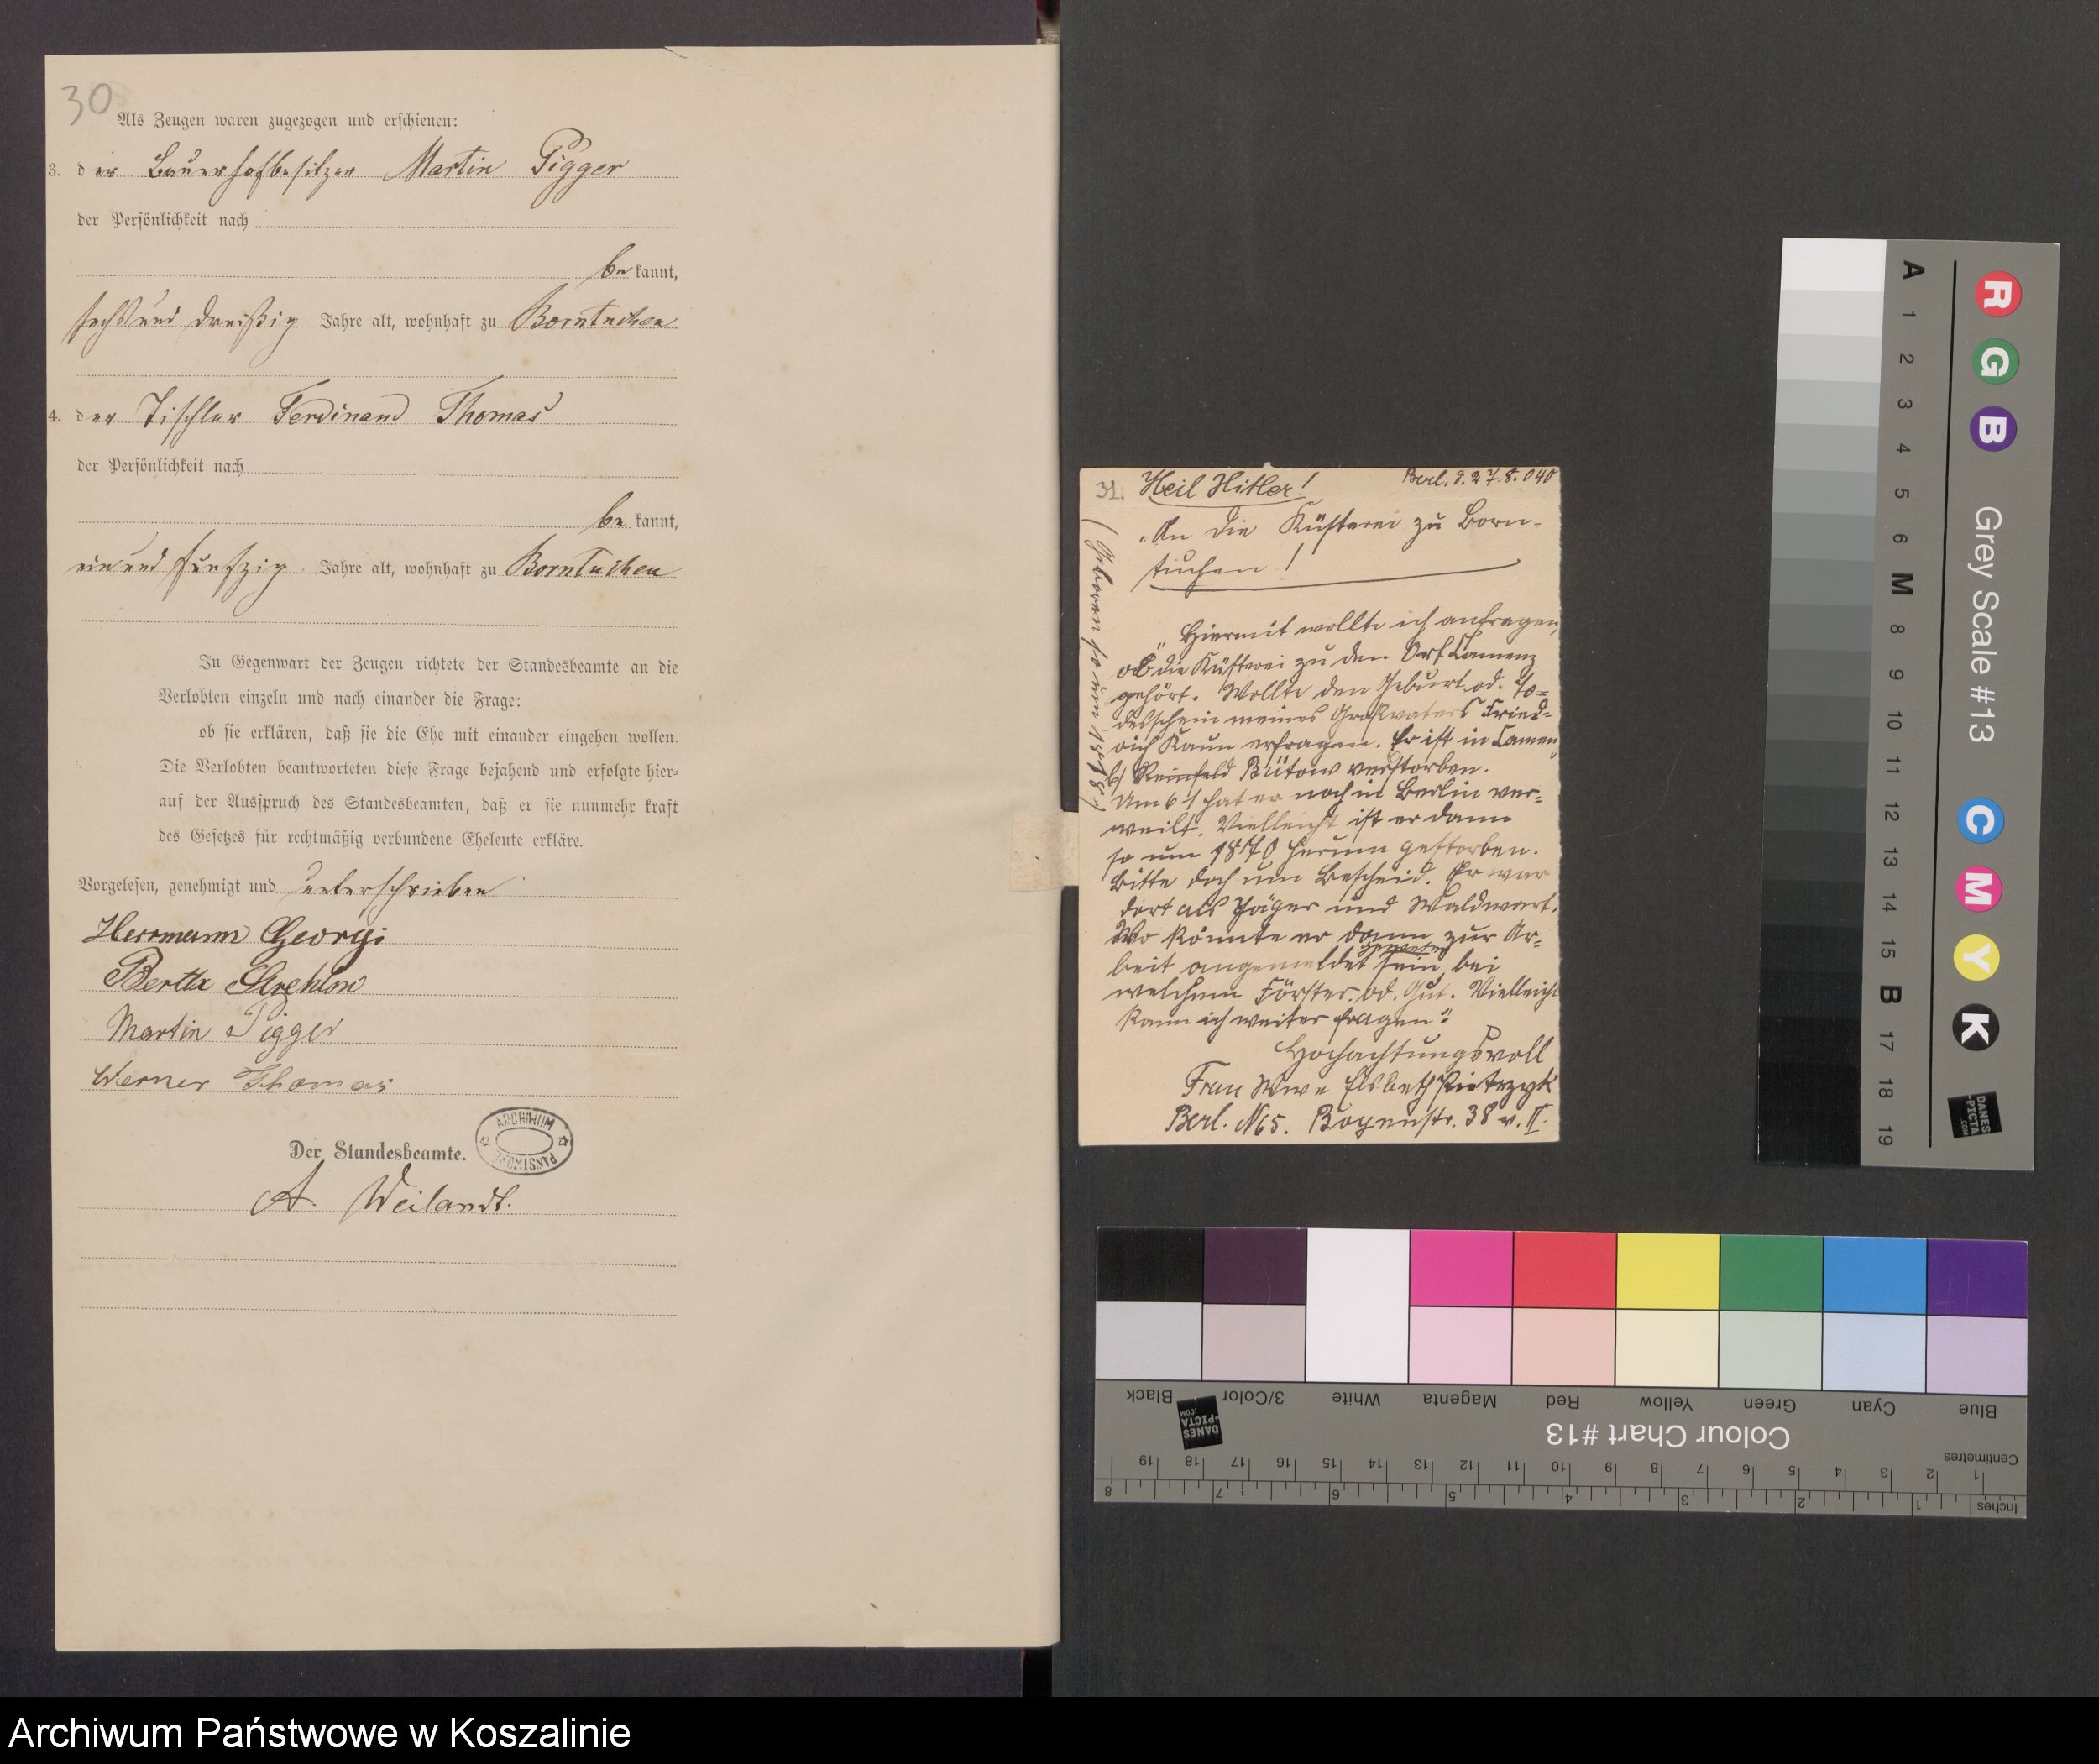 30
Als Zeugen waren zugezogen und erschienen:
3. der Bauerhofbesitzer Martin Pigger
der Persönlichkeit nach
bekannt,
sechsund dreißig Jahre alt, wohnhaft zu Borntuchen
4. der Tischler Ferdinand Thomas
der Persönlichkeit nach
bekannt,
einund fünfzig Jahre alt, wohnhaft zu Borntuchen
In Gegenwart der Zeugen richtete der Standesbeamte an die
Verlobten einzeln und nach einander die Frage:
ob sie erklären, daß sie die Ehe mit einander eingehen wollen.
Die Verlobten beantworteten diese Frage bejahend und erfolgte hier=
auf der Ausspruch des Standesbeamten, daß er sie nunmehr kraft
des Gesetzes für rechtmäßig verbundene Eheleute erkläre.
Vorgelesen, genehmigt und unterschrieben
Herrmann Georgi
Bertha Strehlow
Martin Pigger
Werner Thomas
Der Standesbeamte.
ARCHIWUM PAŃSTWOWE
A. Weilandt.
31. Heil Hitler! Berl. d. 27.8.040
An die Küsterei zu Born-
tuchen!
Hiermit wollte ich anfragen,
ob die Küsterei zu den Orf Camenz
gehört. Wollte den Geburt od. To=
desschein meines Großvaters Fried=
rich Kaun erfragen. Er ist in Camen
b/ Reinfeld Bütow verstorben.
Um 61 hat er noch in Berlin ver=
weilt. Vielleicht ist er dann
so um 1870 herum gestorben.
Bitte doch um Bescheid. Er war
dort als Jäger und Waldwart.
Wo könnte er dann zur Ar=
beit angemeldet gewesen sein, bei
welchem Förster. od. Gut. Vielleicht
kann ich weiter fragen?
Hochachtungsvoll
Frau Wwe Elsbeth Pietrzyk
Berl. N65. Boyenstr. 38 v. II.
(Geboren so um 1818)
A 1 2 3 4 5 6 M 8 9 10 11 12 13 14 15 B 17 18 19
Grey Scale #13
R G B C M Y K
DANES
-PICTA
.COM
Blue Cyan Green Yellow Red Magenta White 3/Color Black
Colour Chart #13
DANES
-PICTA
.COM
Centimetres 1 2 3 4 5 6 7 8 9 10 11 12 13 14 15 16 17 18 19
Inches 1 2 3 4 5 6 7 8
Archiwum Państwowe w Koszalinie